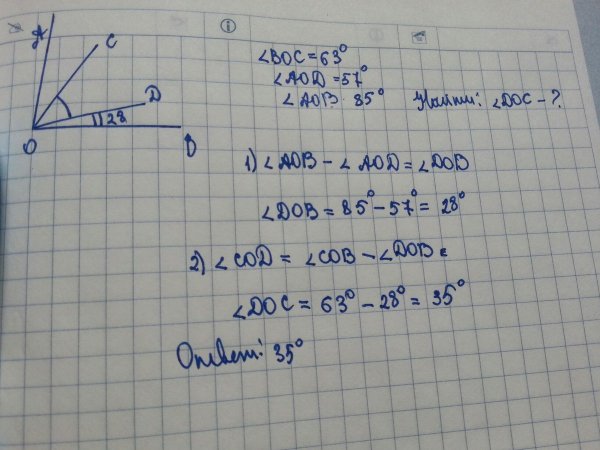 A
C
D
28
O
B
∠BOC = 63°
∠AOD = 57°
∠AOB 85°
Найти: ∠DOC - ?
1) ∠AOB - ∠AOD = ∠DOB
∠DOB = 85° - 57° = 28°
2) ∠COD = ∠COB - ∠DOB =
∠DOC = 63° - 28° = 35°
Ответ: 35°